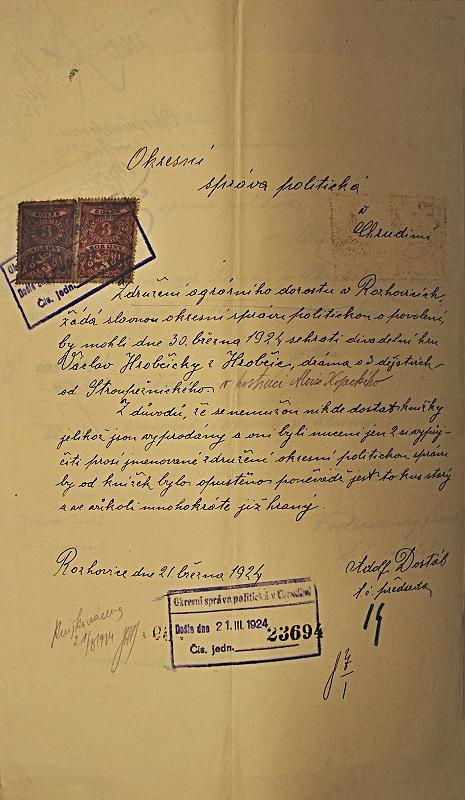 Okresní
správa politická
v
Chrudimi
KOLEK
3
KORUNY
KOLEK
3
KORUNY
Došlo dne
Čís. jedn.
Združení agrárního dorostu v Rozhovicích,
žádá slavnou okresní správu politickou o povolení,
by mohli dne 30. března 1924 sehrati divadelní hru
Václav Hrobčický z Hrobčic, dráma o 3 dějstvích
od Stroupežnického. v hostinci Aloise
Z důvodů, že se nemůžou nikde dostat knížky
jelikož jsou vyprodány a oni byli nuceni jen 2 si vypůj-
čiti prosí jmenované združení okresní politickou správu
by od knížek bylo opuštěno poněvádž jest to kus starý
a ve vůkolí mnohokráte již hraný.
Rozhovice dne 21. března 1924
Adolf Dostál
t. č. předseda
Okresní správa politická v Chrudimi
Došlo dne 21. III. 1924 23694
Čís. jedn.